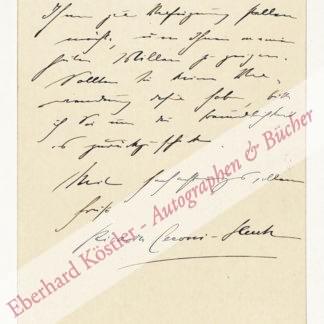 Ihnen zur Verfügung stellen
möchte, um Ihnen meinen
guten Willen zu zeigen.
Sollten Sie keine Ver-
wendung dafür haben, bitte
ich Sie um die Freundlichkeit
es zurückzuschicken.
Mit hochachtungsvollem
Gruß
Ricarda Ceconi-Huch
Eberhard Köstler - Autographen & Bücher